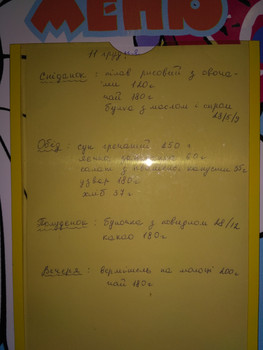 МЕНЮ
11 грудня
Сніданок: плов рисовый з овоча-
ми 180 г
чай 180 г
булка з маслом + сиром
28/5/9
Обед: суп гречаний 250 г
60 г
салат з капусти 55 г
узвар 180 г
хліб 32 г
Полуденок: булочка з повидлом 28/12
какао 180 г
Вечеря: вермішель на молоці 200 г
чай 180 г